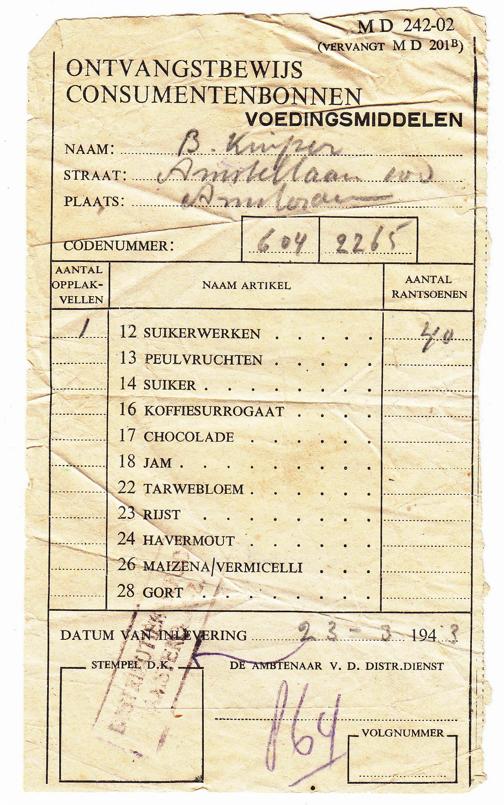 M D 242-02
(VERVANGT M D 201B)
ONTVANGSTBEWIJS
CONSUMENTENBONNEN
VOEDINGSMIDDELEN
NAAM: B. Kuiper
STRAAT: Amstellaan
PLAATS: Amsterdam
CODENUMMER: 604 2265
AANTAL OPPLAK-VELLEN NAAM ARTIKEL AANTAL RANTSOENEN
1 12 SUIKERWERKEN . . . . . 40
13 PEULVRUCHTEN . . . . .
14 SUIKER . . . . . . . .
16 KOFFIESURROGAAT . . . .
17 CHOCOLADE . . . . . .
18 JAM . . . . . . . . .
22 TARWEBLOEM . . . . . .
23 RIJST . . . . . . . .
24 HAVERMOUT . . . . . .
26 MAIZENA/VERMICELLI . . .
28 GORT . . . . . . . .
DATUM VAN INLEVERING 23-3 1943
STEMPEL D.K. DE AMBTENAAR V. D. DISTR.DIENST
864
VOLGNUMMER